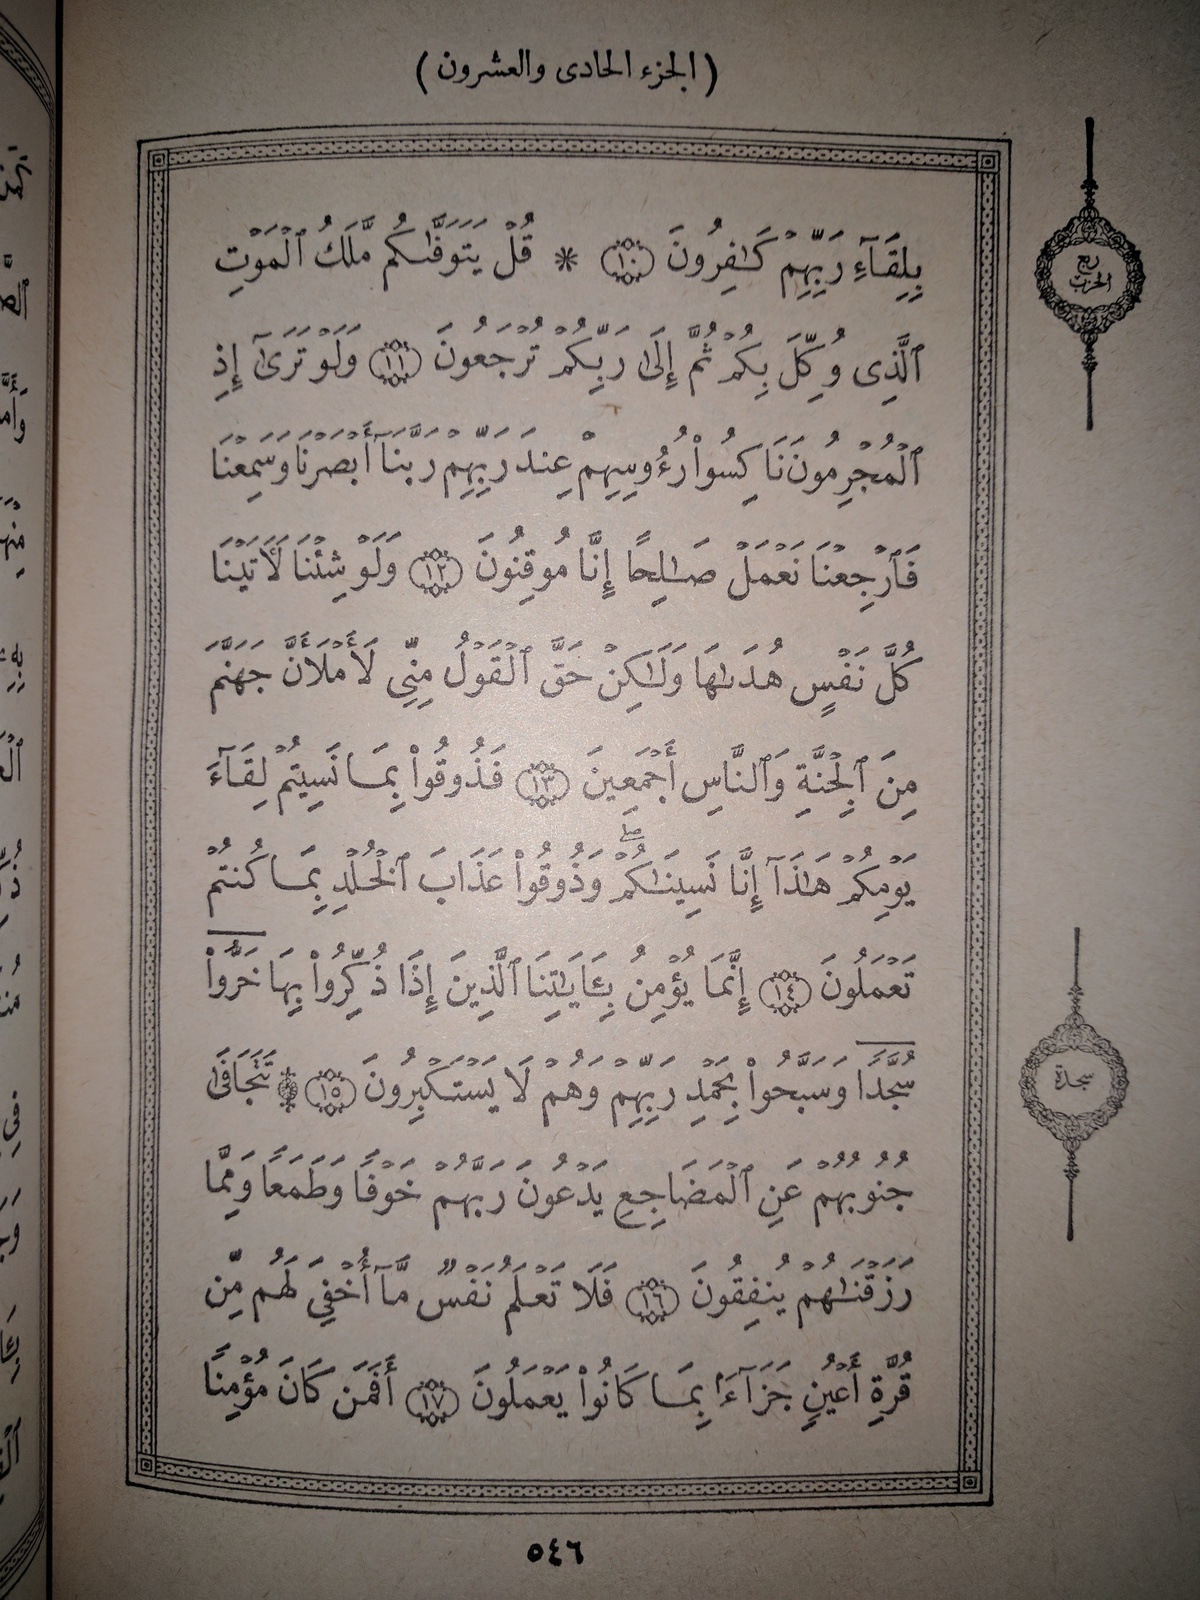 ( الجزء الحادى والعشرون )
بِلِقَآءِ رَبِّهِمۡ كَـٰفِرُونَ ١٠ * قُلۡ يَتَوَفَّىٰكُم مَّلَكُ ٱلۡمَوۡتِ
ربع
الحزب
ٱلَّذِى وُكِّلَ بِكُمۡ ثُمَّ إِلَىٰ رَبِّكُمۡ تُرۡجَعُونَ ١١ وَلَوۡ تَرَىٰٓ إِذِ
ٱلۡمُجۡرِمُونَ نَاكِسُوا۟ رُءُوسِهِمۡ عِندَ رَبِّهِمۡ رَبَّنَآ أَبۡصَرۡنَا وَسَمِعۡنَا
فَٱرۡجِعۡنَا نَعۡمَلۡ صَـٰلِحًا إِنَّا مُوقِنُونَ ١٢ وَلَوۡ شِئۡنَا لَأٓتَيۡنَا
كُلَّ نَفۡسٍ هُدَىٰهَا وَلَـٰكِنۡ حَقَّ ٱلۡقَوۡلُ مِنِّى لَأَمۡلَأَنَّ جَهَنَّمَ
مِنَ ٱلۡجِنَّةِ وَٱلنَّاسِ أَجۡمَعِينَ ١٣ فَذُوقُوا۟ بِمَا نَسِيتُمۡ لِقَآءَ
يَوۡمِكُمۡ هَـٰذَآ إِنَّا نَسِينَـٰكُمۡۖ وَذُوقُوا۟ عَذَابَ ٱلۡخُلۡدِ بِمَا كُنتُمۡ
تَعۡمَلُونَ ١٤ إِنَّمَا يُؤۡمِنُ بِـَٔايَـٰتِنَا ٱلَّذِينَ إِذَا ذُكِّرُوا۟ بِهَا خَرُّوا۟
سُجَّدًا وَسَبَّحُوا۟ بِحَمۡدِ رَبِّهِمۡ وَهُمۡ لَا يَسۡتَكۡبِرُونَ ١٥ ۩ تَتَجَافَىٰ
سجدة
جُنُوبُهُمۡ عَنِ ٱلۡمَضَاجِعِ يَدۡعُونَ رَبَّهُمۡ خَوۡفًا وَطَمَعًا وَمِمَّا
رَزَقۡنَـٰهُمۡ يُنفِقُونَ ١٦ فَلَا تَعۡلَمُ نَفۡسٌ مَّآ أُخۡفِىَ لَهُم مِّن
قُرَّةِ أَعۡيُنٍ جَزَآءَۢ بِمَا كَانُوا۟ يَعۡمَلُونَ ١٧ أَفَمَن كَانَ مُؤۡمِنًا
٥٤٦